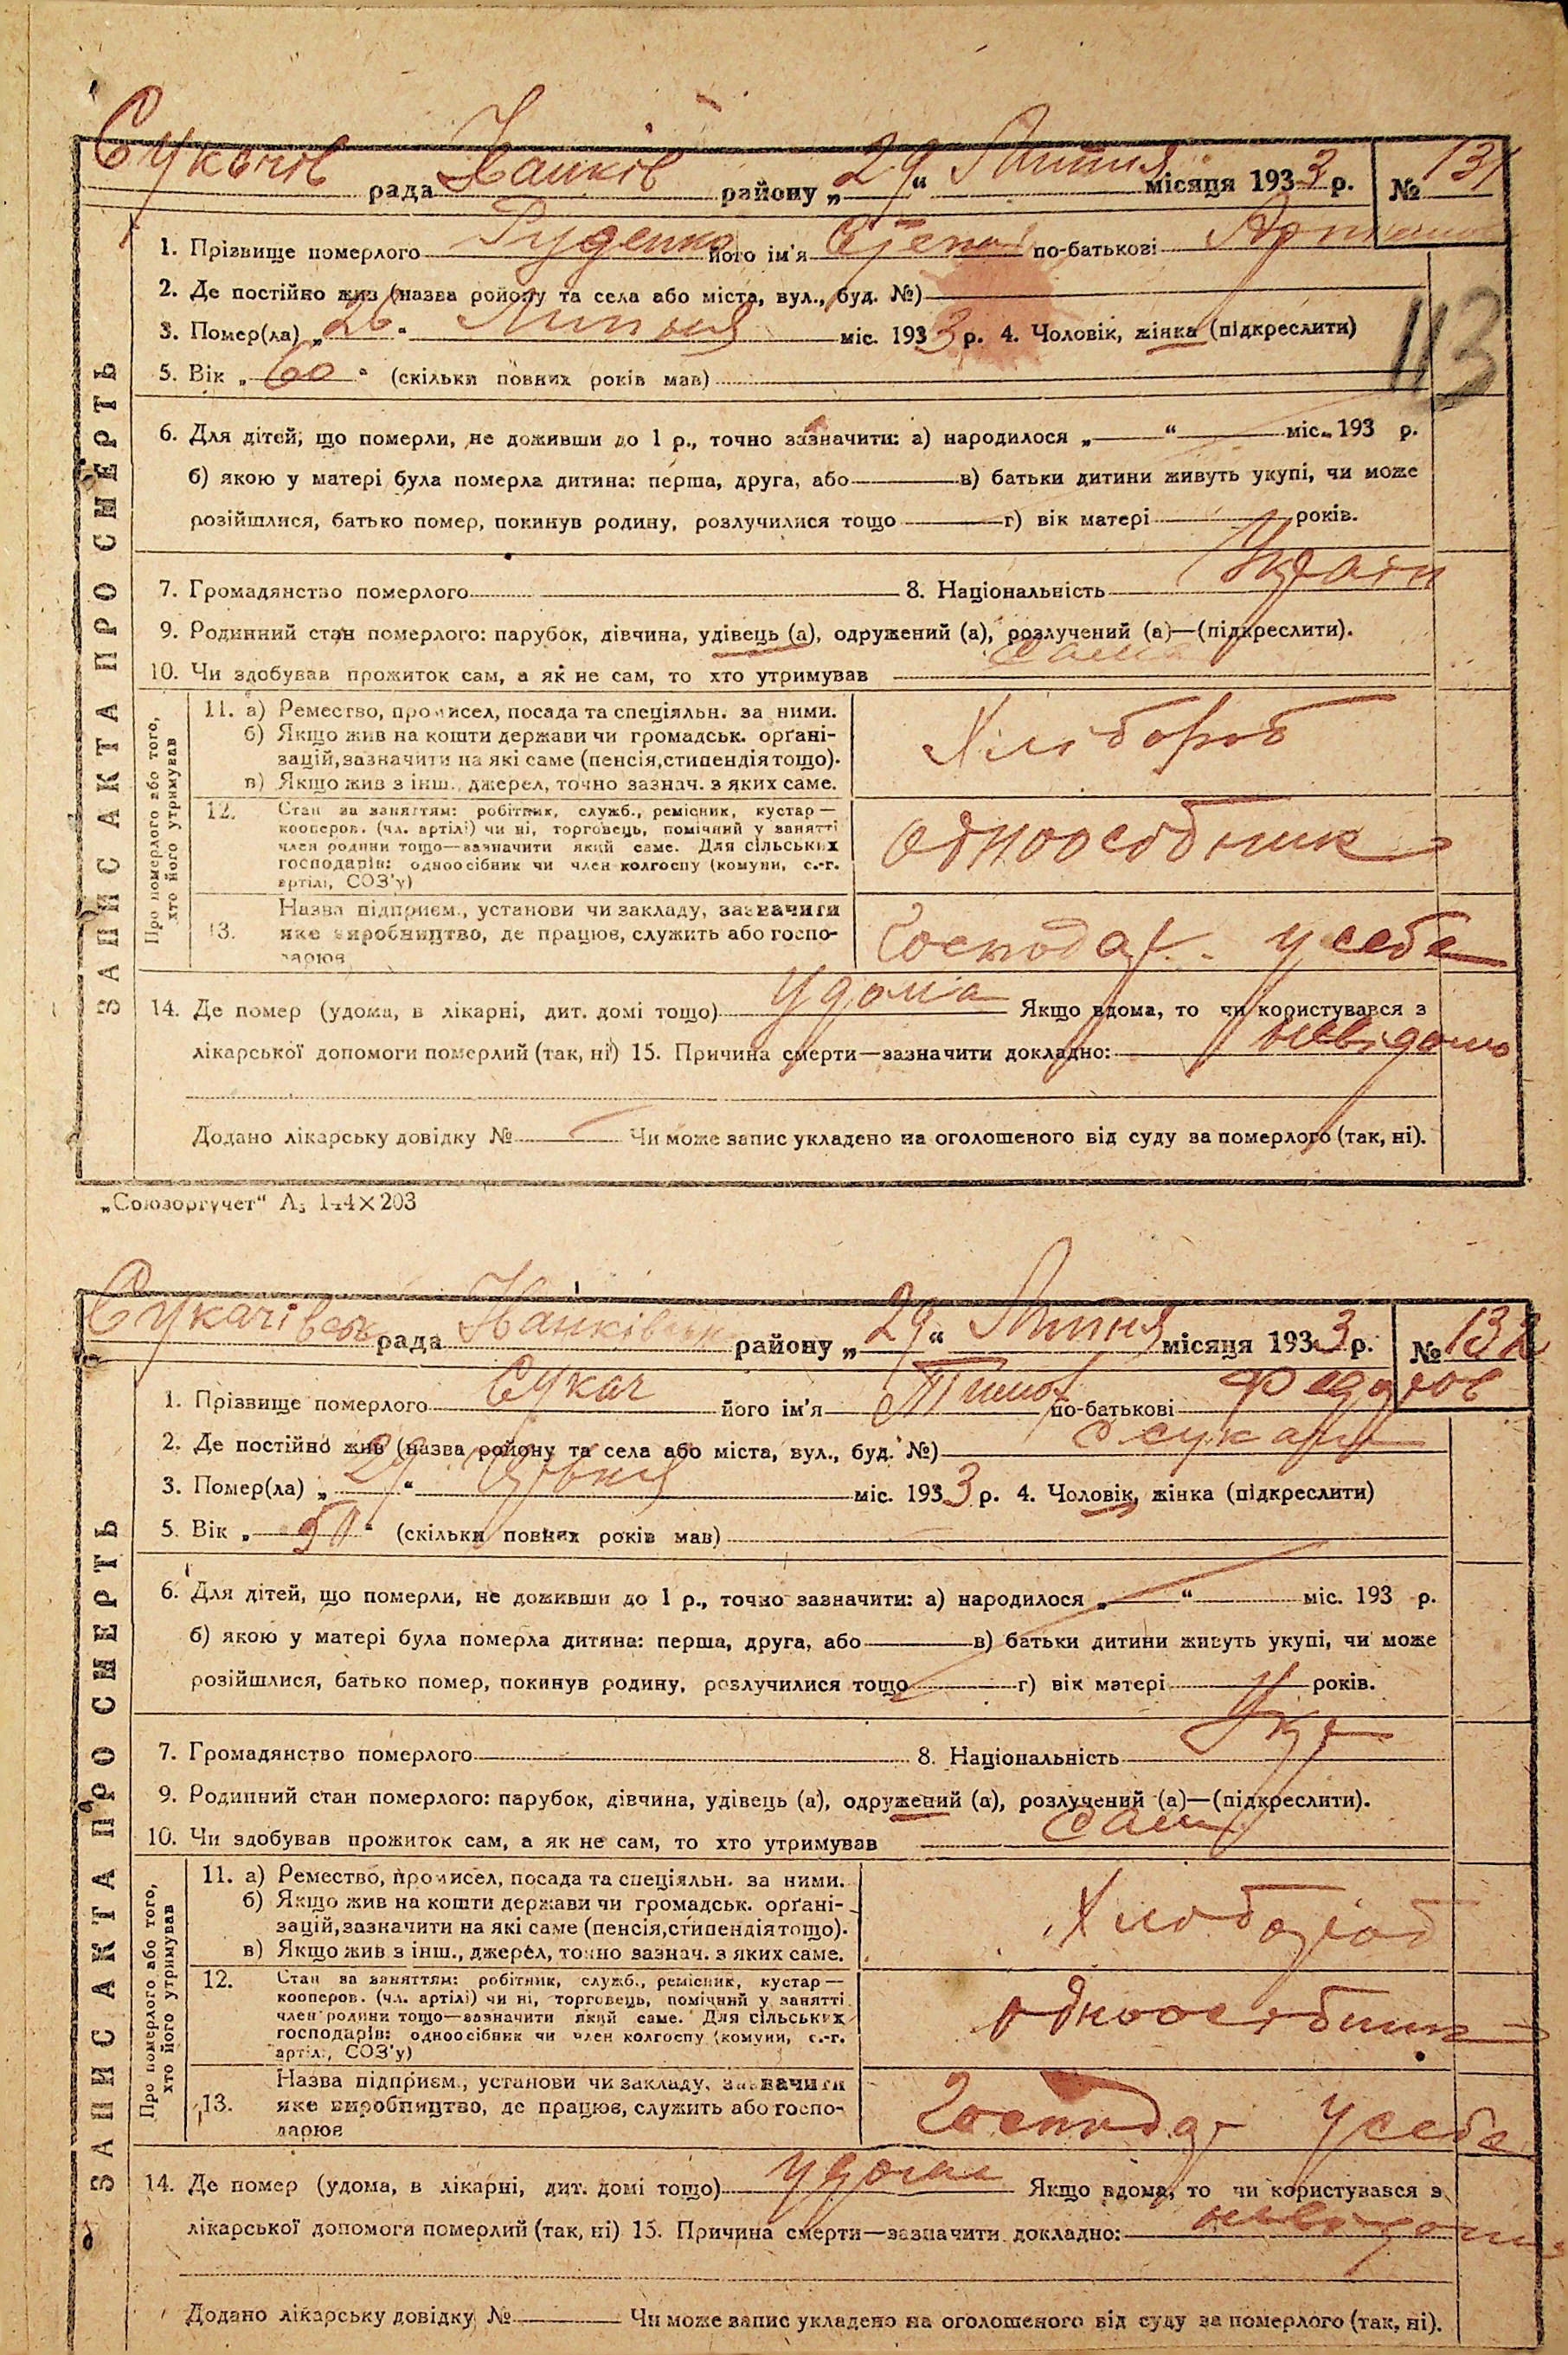 Сукачів рада Ханків району „29“ Липня місяця 1933 р. № 131
1. Прізвище померлого Руденко його ім'я по-батькові
2. Де постійно жив (назва ройону та села або міста, вул., буд. №)
3. Помер(ла) „26“ Липня міс. 1933 р. 4. Чоловік, жінка (підкреслити)
113
5. Вік „60“ (скільки повних років мав)
6. Для дітей, що померли, не доживши до 1 р., точно зазначити: а) народилося „ “ міс. 193 р.
б) якою у матері була померла дитина: перша, друга, або в) батьки дитини живуть укупі, чи може
розійшлися, батько помер, покинув родину, розлучилися тощо г) вік матері років.
7. Громадянство померлого 8. Національність Украін
9. Родинний стан померлого: парубок, дівчина, удівець (а), одружений (а), розлучений (а)—(підкреслити).
10. Чи здобував прожиток сам, а як не сам, то хто утримував сама
ЗАПИС АКТА ПРО СМЕРТЬ
Про померлого або того, хто його утримував
11. а) Ремество, промисел, посада та спеціяльн. за ними.
б) Якщо жив на кошти держави чи громадськ. орґані-
зацій, зазначити на які саме (пенсія, стипендія тощо).
в) Якщо жив з інш., джерел, точно зазнач. з яких саме.
Хлібороб
12. Стан за заняттям: робітник, служб., ремісник, кустар—
кооперов. (чл. артілі) чи ні, торговець, помічний у занятті
член родини тощо—зазначити який саме. Для сільських
господарів: одноосібник чи член колгоспу (комуни, с.-г.
артілі, СОЗ'у)
одноосібник
13. Назва підприєм., установи чи закладу, зазначити
яке виробництво, де працює, служить або госпо-
дарює
Господар. у себе
14. Де помер (удома, в лікарні, дит. домі тощо) удома Якщо вдома, то чи користувався з
лікарської допомоги померлий (так, ні) 15. Причина смерти—зазначити докладно: невідомо
Додано лікарську довідку № Чи може запис укладено на оголошеного від суду за померлого (так, ні).
„Союзоргучет“ А₅ 144×203
Сукачівська рада Ханківськ району „29“ Липня місяця 1933 р. № 132
1. Прізвище померлого Сукач його ім'я Тимоф по-батькові Федоров
2. Де постійно жив (назва ройону та села або міста, вул., буд. №) с сукачі
3. Помер(ла) „29“ міс. 1933 р. 4. Чоловік, жінка (підкреслити)
5. Вік „ “ (скільки повних років мав)
6. Для дітей, що померли, не доживши до 1 р., точно зазначити: а) народилося „ “ міс. 193 р.
б) якою у матері була померла дитина: перша, друга, або в) батьки дитини живуть укупі, чи може
розійшлися, батько помер, покинув родину, розлучилися тощо г) вік матері років.
7. Громадянство померлого 8. Національність Укр
9. Родинний стан померлого: парубок, дівчина, удівець (а), одружений (а), розлучений (а)—(підкреслити).
10. Чи здобував прожиток сам, а як не сам, то хто утримував сам
ЗАПИС АКТА ПРО СМЕРТЬ
Про померлого або того, хто його утримував
11. а) Ремество, промисел, посада та спеціяльн. за ними.
б) Якщо жив на кошти держави чи громадськ. орґані-
зацій, зазначити на які саме (пенсія, стипендія тощо).
в) Якщо жив з інш., джерел, точно зазнач. з яких саме.
Хлібороб
12. Стан за заняттям: робітник, служб., ремісник, кустар—
кооперов. (чл. артілі) чи ні, торговець, помічний у занятті
член родини тощо—зазначити який саме. Для сільських
господарів: одноосібник чи член колгоспу (комуни, с.-г.
артілі, СОЗ'у)
одноосібник
13. Назва підприєм., установи чи закладу, зазначити
яке виробництво, де працює, служить або госпо-
дарює
Господар у себе
14. Де помер (удома, в лікарні, дит. домі тощо) удома Якщо вдома, то чи користувався з
лікарської допомоги померлий (так, ні) 15. Причина смерти—зазначити докладно: невідомо
Додано лікарську довідку № Чи може запис укладено на оголошеного від суду за померлого (так, ні).